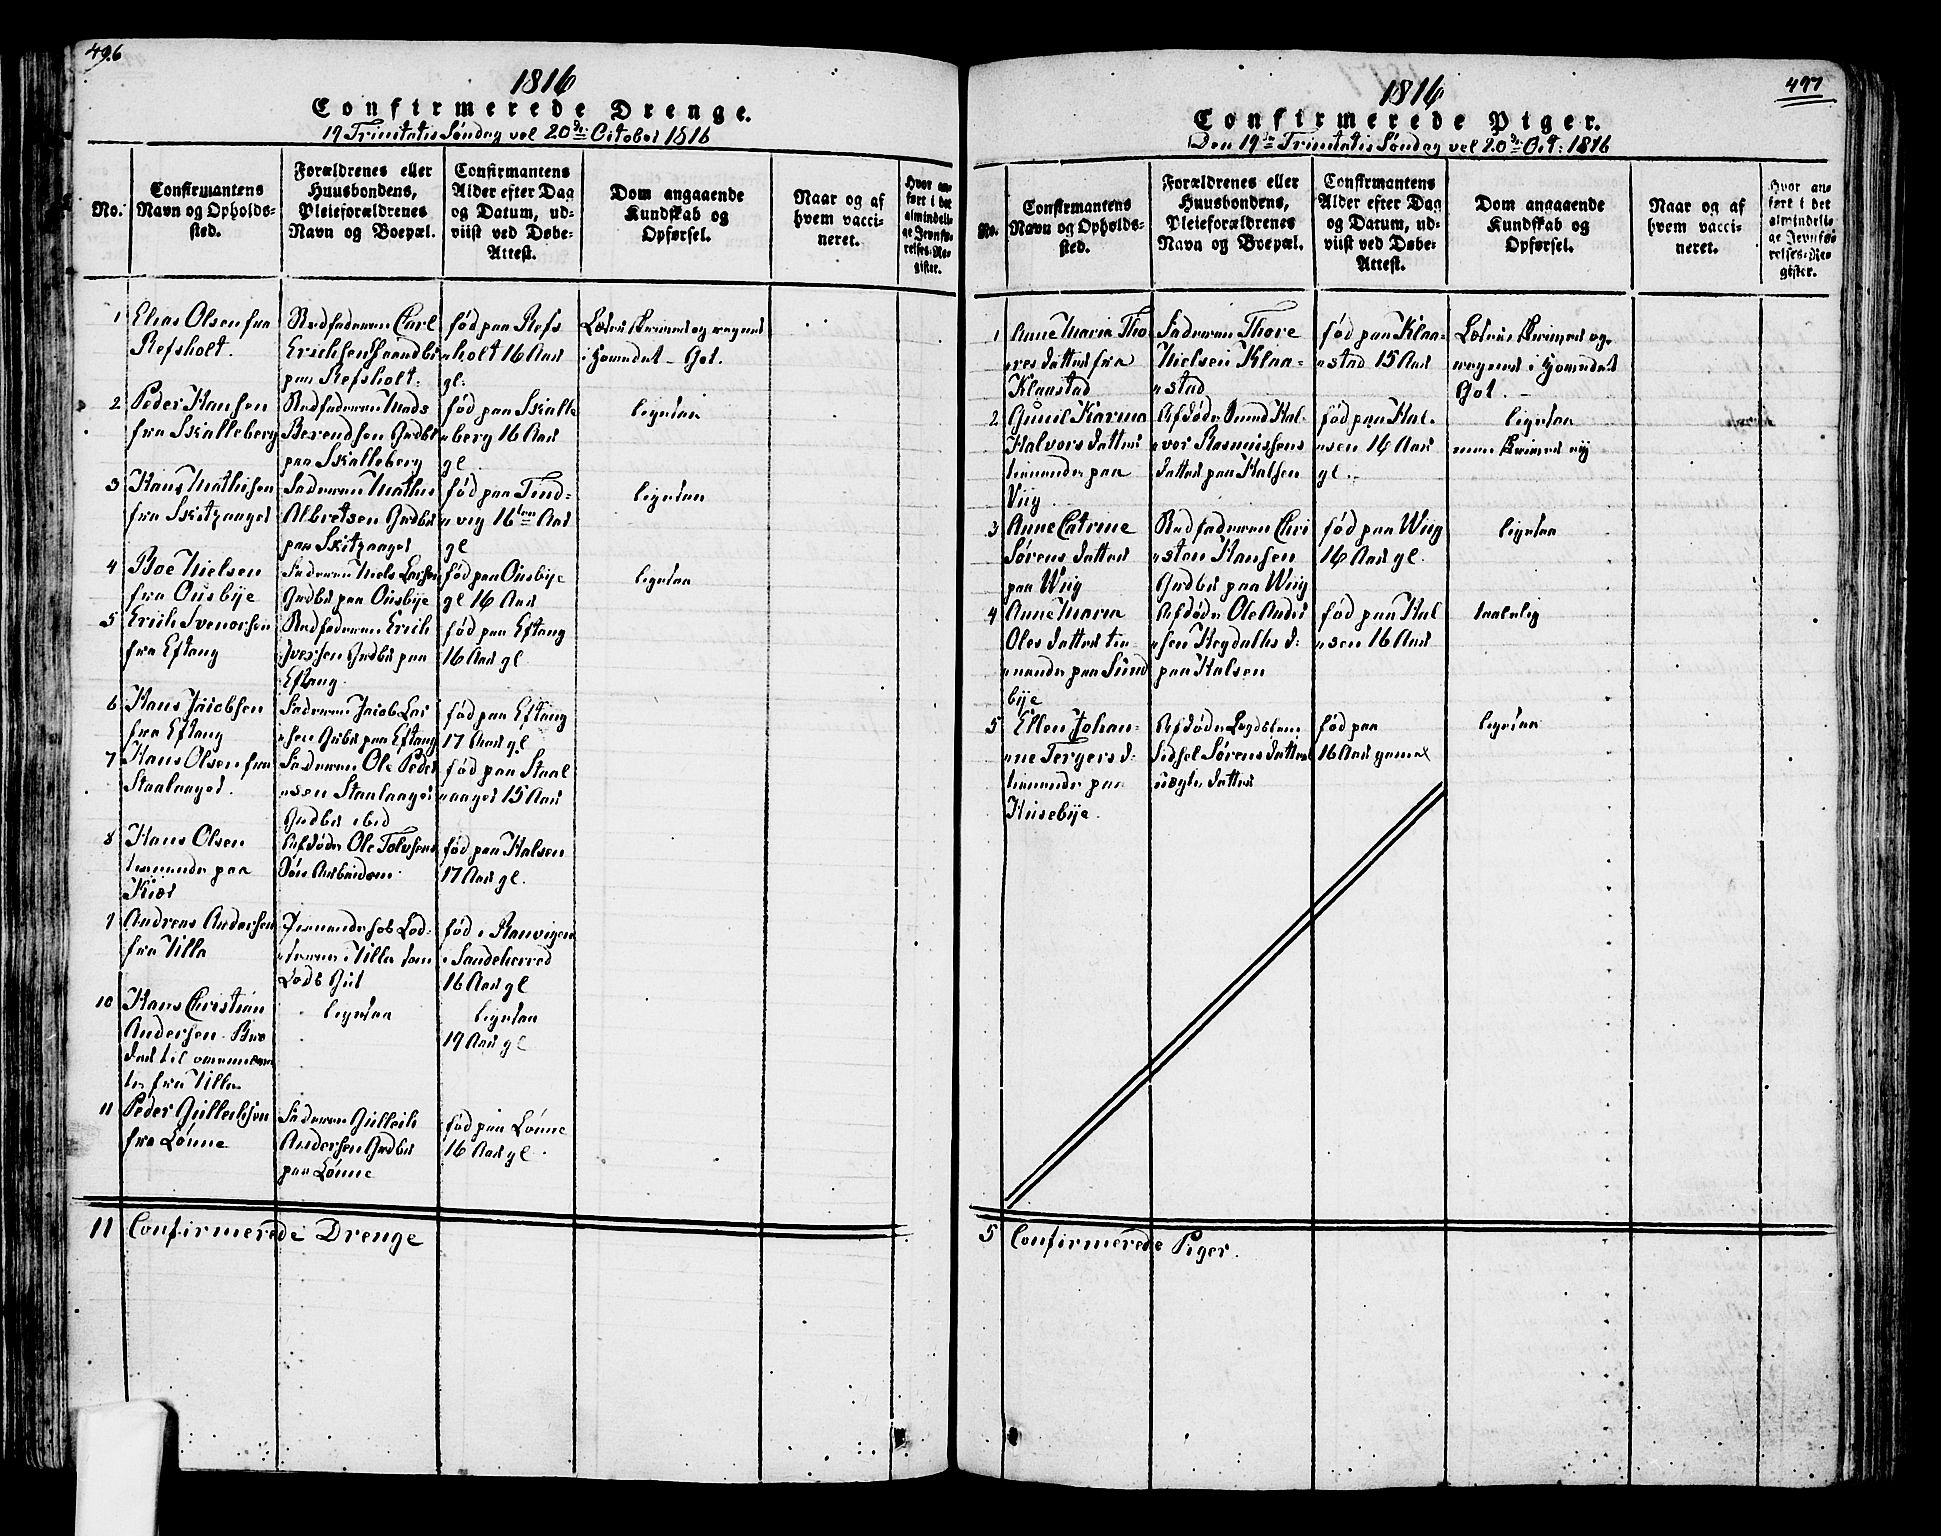 496
1816
Confirmerede Drenge.
19 Trinitatis Søndag vel 20de October 1816
No.
Confirmantens Navn og Opholds-sted.
Forældrenes eller Huusbondens, Pleieforældrenes Navn og Boepæl.
Confirmantens Alder efter Dag og Datum, ud-viist ved Døbe-Attest.
Dom angaaende Kundskab og Opførsel.
Naar og af hvem vacci-neret.
Hvor an-ført i det almindeli-ge Jevnfø-relses-Re-gister.
1 Elias Olsen fra
Refsholt.
Stedfaderen Carl
Erichsen
paa Refsholt.
fød paa Refs
holt 16 Aar
gl.
2 Peder Hansen
fra Skalleberg
Stedfaderen Mads
Berendsen Grdbr
paa Skalleberg
fød paa Skalle
berg 16 Aar
gl.
ligesaa
3 Hans Mathisen
fra Skitzaager
Faderen Mathis
Albretsen Grdbr
paa Skitzaager
fød paa Tind=
vig 16 Aar
gl
ligesaa
4 Boe Nielsen
fra Ousbye
Faderen Niels Larsen
Grdbr paa Ousbye
fød paa Ousbye
gl 16 Aar
ligesaa
5 Erich Svenorsen
fra Eftang
Stedfaderen Erich
Iversen Grdbr paa
Eftang.
fød paa Eftang
16 Aar gl.
6 Hans Jacobsen
fra Eftang
Faderen Jacob Lar
sen Grdbr paa Eftang
fød paa Eftang
17 Aar gl.
7 Hans Olsen fra
Staalaager.
Faderen Ole Peder
sen Staalaager
Grdbr ibid
fød paa Staal
aager 15 Aar
8 Hans Olsen
tienende paa
Kiær
Afdøde Ole Tolvsens
Søn
fød paa Halsen
17 Aar gl.
9 Andreas Andersen
fra Nilla
Tienende hos Lod=
seren i Nilla som
Lods Gut
fød i Ranvigen
i Sandeherred
16 Aar gl
10 Hans Christian
Andersen. Bro
der til ovenmeld
te fra Nilla.
ligesaa
ligesaa
19 Aar gl
11 Peder Gulleichsen
fra Lønne
Faderen Gulleich
Andersen Grdbr
paa Lønne
fød paa Lønne
16 Aar gl.
11 Confirmerede Drenge
497
1816
Confirmerede Piger.
Den 19de Trinitatis Søndag vel 20de Oct: 1816
No.
Confirmantens Navn og Opholds-sted.
Forældrenes eller Huusbondens, Pleieforældrenes Navn og Boepæl.
Confirmantens Alder efter Dag og Datum, ud-viist ved Døbe-Attest.
Dom angaaende Kundskab og Opførsel.
Naar og af hvem vacci-neret.
Hvor an-ført i det almindeli-ge Jevnfø-relses-Re-gister.
1 Anne Maria Tho
res datter fra
Klaastad
Faderen Thore
Nielsen Klaa=
stad
fød paa Klaa=
stad 15 Aar
2 Gunil Karina
Halvors datter
tienende paa
Viig.
Afdøde Hal=
vor Rasmussens
datter paa Halsen
fød paa Hal=
sen 16 Aar
gl.
ligesaa
3 Anne Catrine
Sørens datter
paa Wiig
Stedfaderen Chri
sten Hansen
Grdbr paa Wiig
fød paa Wiig
16 Aar gl.
ligesaa
4 Anne Maria
Oles datter tie
nende paa Sund
bye
Afdøde Ole Ander
sen d:
paa Halsen
fød paa Hal
sen 16 Aar
taalelig
5 Ellen Johan=
ne Tergers d:
tienende paa
Husebye.
Afdøde
Sidsel Sørens datters
uægte datter
fød paa
16 Aar gamel
ligesaa
5 Confirmerede Piger.